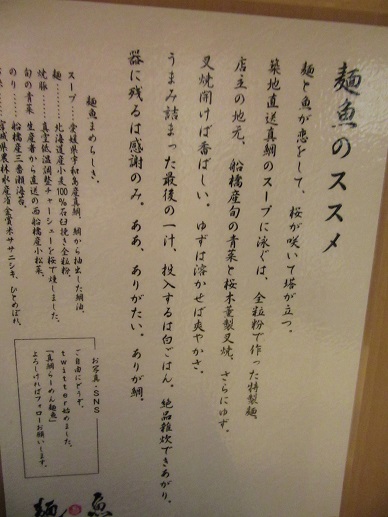 麺魚のススメ
麺と魚が恋をして、桜が咲いて塔が立つ。
築地直送真鯛のスープに泳ぐは、全粒粉で作った特製麺。
店主の地元、船橋産旬の青菜と桜木薫製叉焼、さらにゆず。
叉焼開けば香ばしい。ゆずは溶かせば爽やかさ。
うまみ詰まった最後の一汁、投入するは白ごはん。絶品雑炊できあがり。
器に残るは感謝のみ。ああ、ありがたい。ありが鯛。
麺魚まめちしき。
スープ……愛媛県宇和島産真鯛、鯛から抽出した鯛油。
麺……北海道産小麦100%石臼挽き全粒粉。
焼豚……真空低温調整チャーシューを桜で燻しました。
旬の青菜 生産者から直送の西船橋産小松菜。
のり……船橋産三番瀬海苔。
宮城県農林水産省金賞米ササニシキ、ひとめぼれ。
お写真・SNS
ご自由にどうぞ。
twitter始めました。
「真鯛らーめん麺魚」
よろしければフォローお願いします。
麺魚